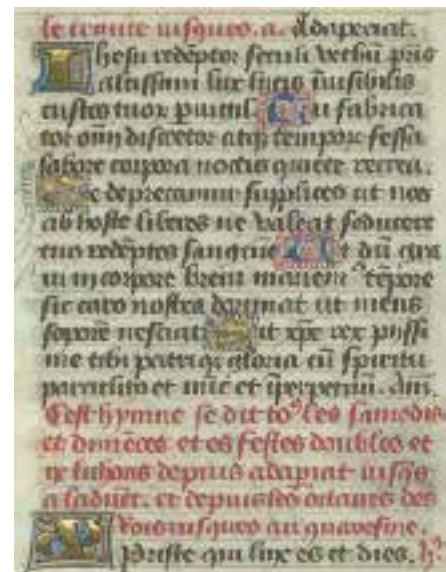 le trouve iusques. a. Adaperiat.
Ihesu redēptor seculi verbū pris
altissimi lux lucis īuisibilis
custos tuor puigil. Tu fabrica
tor oīm discretor atq; tempor fessa
labore corpora noctis quiete recrea.
Te deprecamur supplices ut nos
ab hoste liberes ne valeat seducere
tuo redēptos sanguīe Ut dū gra
ui in corpore breui manem⁹ tēpore
sic caro nostra dormiat ut mens
soporē nesciat Sit xp̄e rex pijssi
me tibi patriq; gloria cū spiritu
paraclito et nūc et ī perpetuū. Am̄.
Cest hymne se dit to⁹ les samedis
et dimēces et es festes doubles et
ix lichons depuis adaperiat iusq̄s
a laduēt. et depuis les octaues des
Rois iusques au quaresme.
Xpriste qui lux es et dies. h⁹